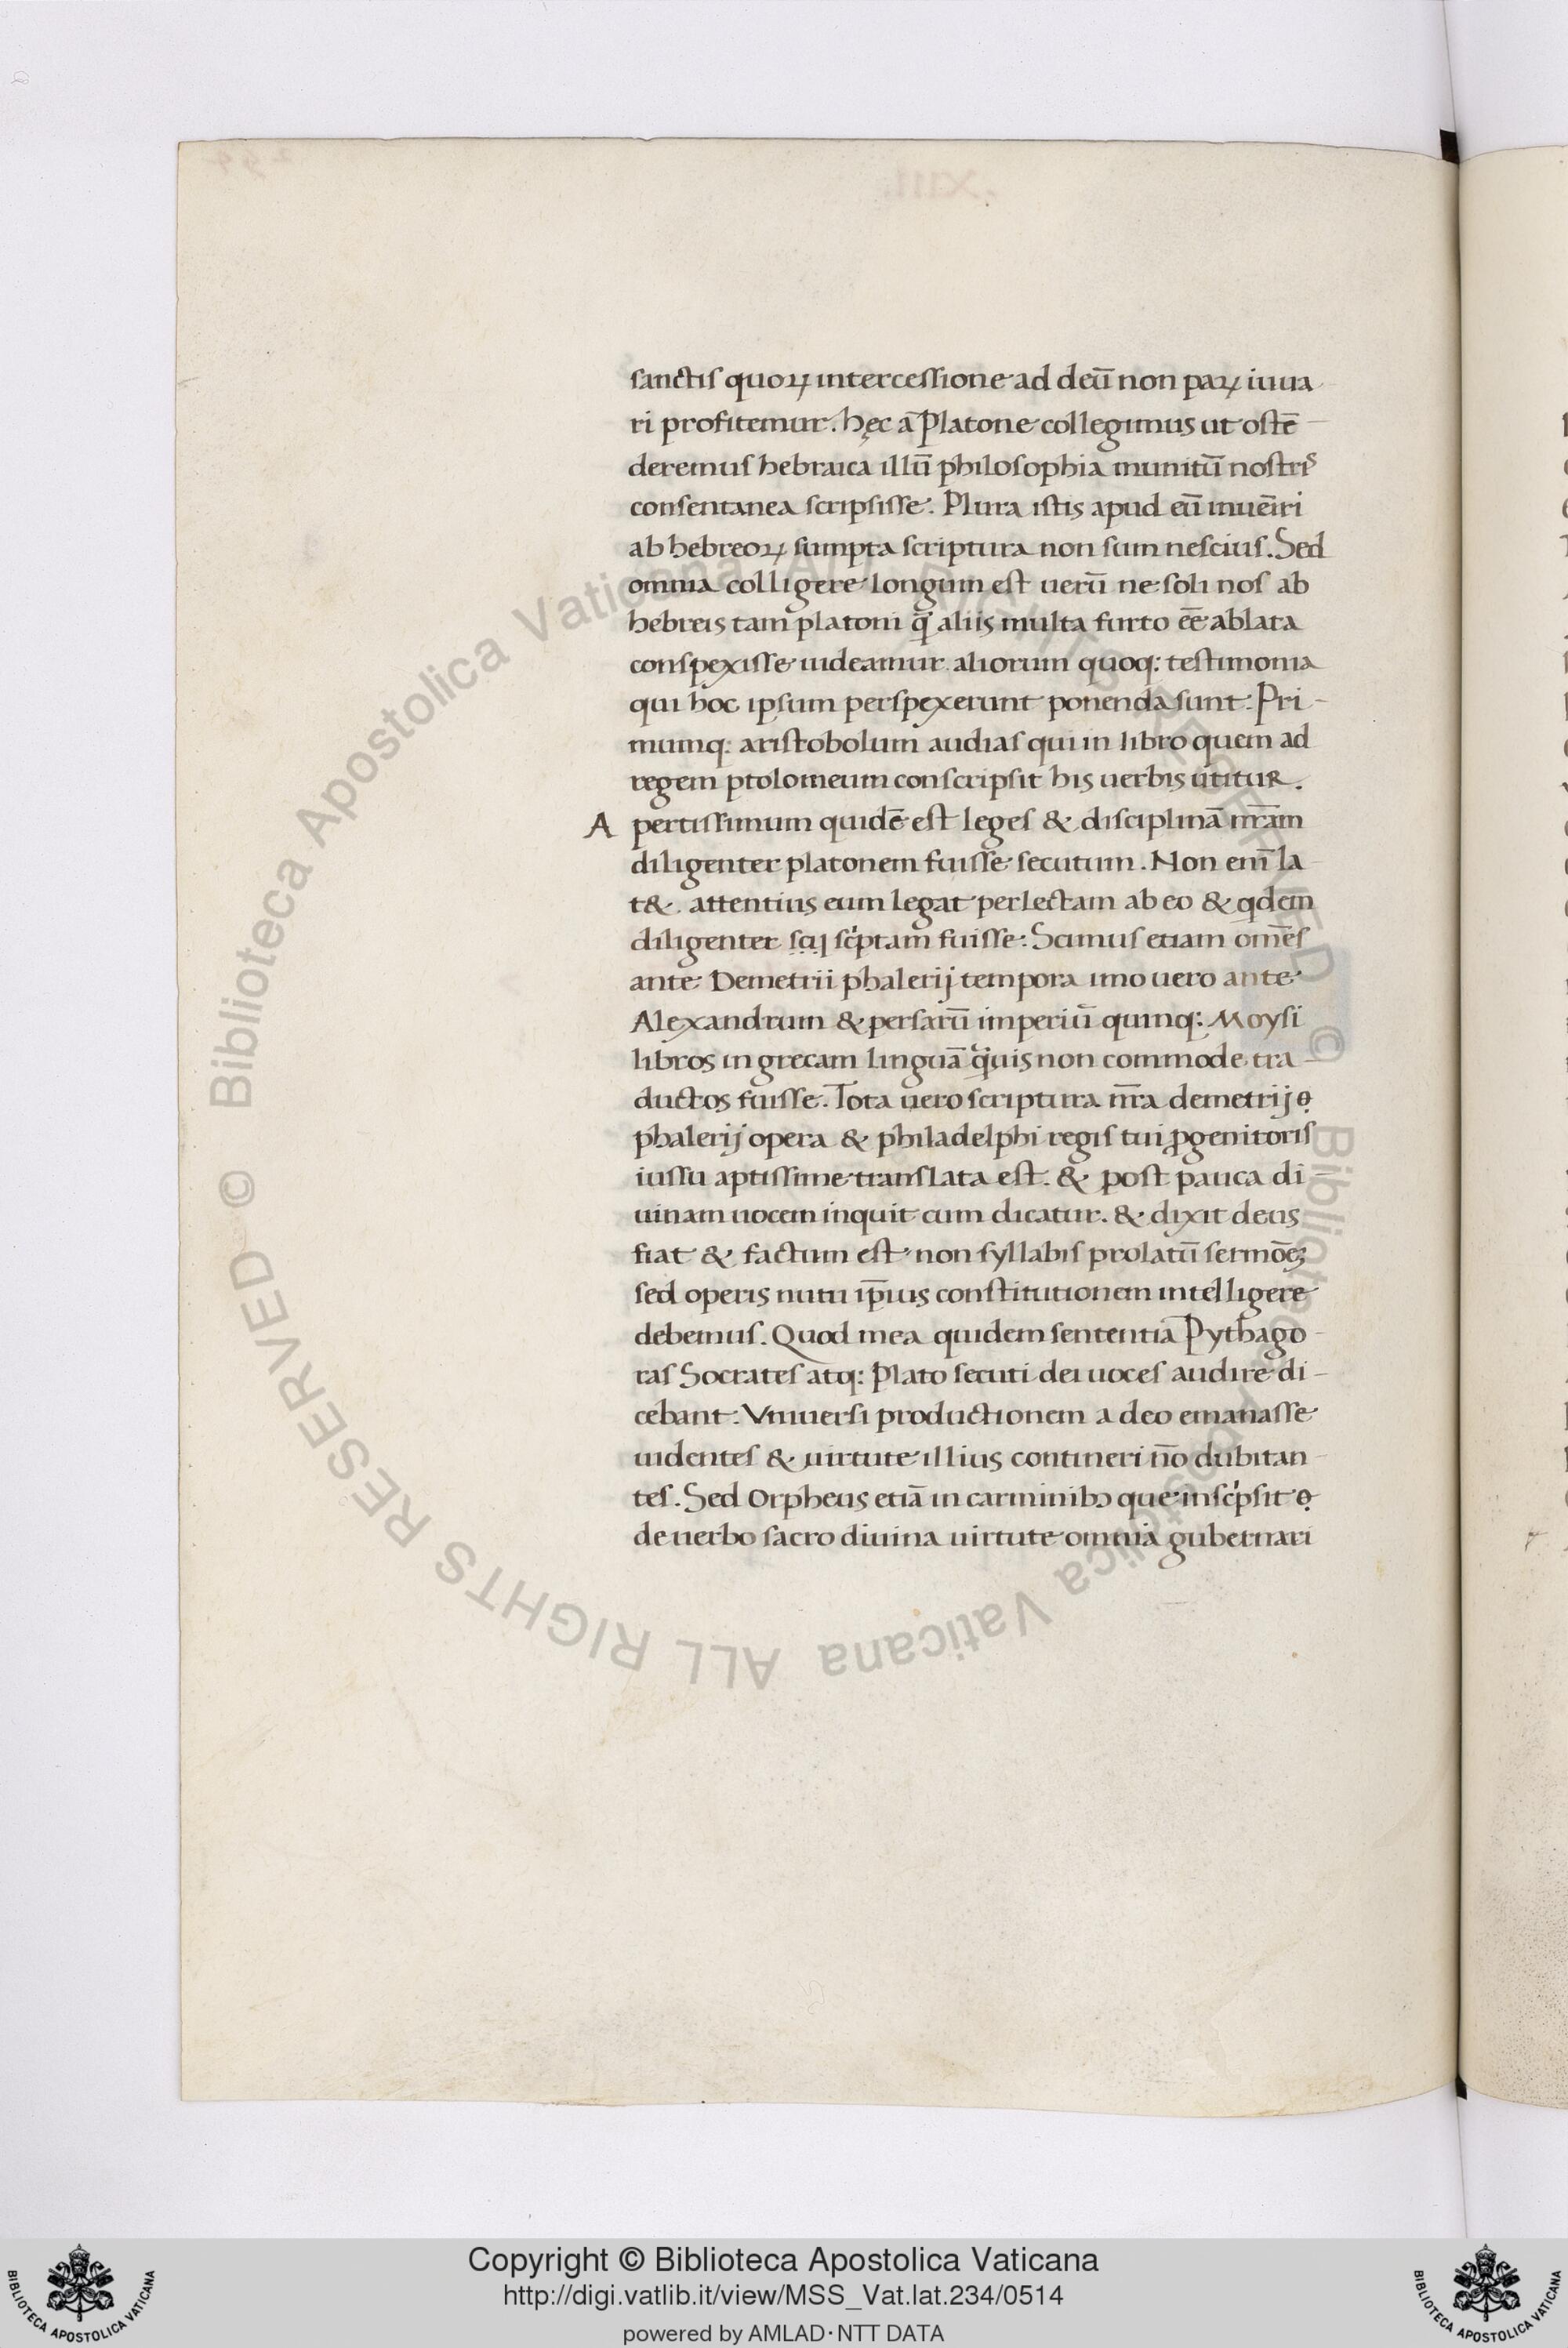 sanctis quoꝝ intercessione ad deū non paꝝ iuua
ri profitemur. hęc a Platone collegimus ut ostē
deremus hebraica illū philosophia munitū nostris
consentanea scripsisse. Plura istis apud eū inuēiri
ab hebreoꝝ sumpta scriptura non sum nescius. Sed
omnia colligere longum est uerū ne soli nos ab
hebreis tam platoni q̃ aliis multa furto eē ablata
conspexisse uideamur aliorum quoq: testimonia
qui hoc ipsum perspexerunt ponenda sunt. Pri-
mumq: aristobolum audias qui in libro quem ad
regem ptolomeum conscripsit his uerbis utitur.
Apertissimum quidē est leges & disciplinā nr̄am
diligenter platonem fuisse secutum. Non em̄ la
t&. attentius eum legat perlectam ab eo & qdem
diligenter scr̄ptam fuisse. Scimus etiam omēs
ante Demetrii phalerij tempora imo uero ante
Alexandrum & persarū imperiū quinq: Moysi
libros in grecam linguā q̃uis non commode tra-
ductos fuisse. Tota uero scriptura nr̄a demetrij
phalerij opera & philadelphi regis tui ꝓgenitoris
iussu aptissime translata est. & post pauca di
uinam uocem inquit cum dicatur. & dixit deus
fiat & factum est non syllabis prolatū sermōeꝫ
sed operis nutu ip̄ius constitutionem intelligere
debemus. Quod mea quidem sententia Pythago-
ras Socrates atq: Plato secuti dei uoces audire di-
cebant. Vniuersi productionem a deo emanasse
uidentes & uirtute illius contineri nō dubitan-
tes. Sed Orpheus etiā in carminibꝰ que inscr̄psit
de uerbo sacro diuina uirtute omnia gubernari
Biblioteca Apostolica Vaticana ALL RIGHTS RESERVED ©
Biblioteca Apostolica Vaticana ALL RIGHTS RESERVED ©
BIBLIOTECA APOSTOLICA VATICANA
Copyright © Biblioteca Apostolica Vaticana
http://digi.vatlib.it/view/MSS_Vat.lat.234/0514
powered by AMLAD·NTT DATA
BIBLIOTECA APOSTOLICA VATICANA